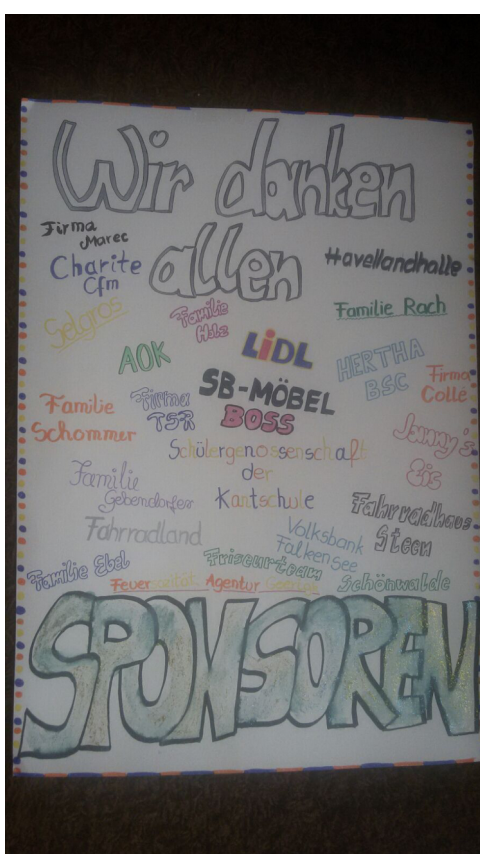 Wir danken
allen
Firma
Marec
Charite
Cfm
Havellandhalle
Selgros
Familie
Familie Rach
AOK
LiDL
HERTHA
BSC
Firma
Colle
Familie
Schommer
Firma
TSR
SB-MÖBEL
BOSS
Junny's
Eis
Schülergenossenschaft
der
Kantschule
Familie
Gebendorfer
Fahrradhaus
Steen
Fahrradland
Volksbank
Falkensee
Familie Ebel
Friseurteam
Schönwalde
Feuer Agentur
SPONSOREN